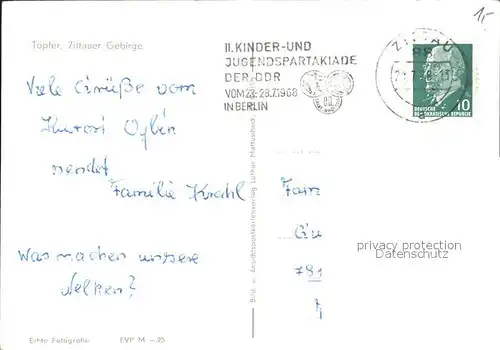 Töpfer, Zittauer Gebirge
Viele Grüße vom
Kurort Oybin
sendet
Familie Krahl
Was machen unsere
Nelken?
Echte Fotografie EVP M -.25
Bild- u. Ansichtspostkartenverlag Lothar
II. KINDER-UND
JUGENDSPARTAKIADE
DER DDR
VOM 23.-28.7.1968
IN BERLIN
ZITTAU
10
DEUTSCHE
DEMOKRATISCHE REPUBLIK
1,-
Fam
781
privacy protection
Datenschutz